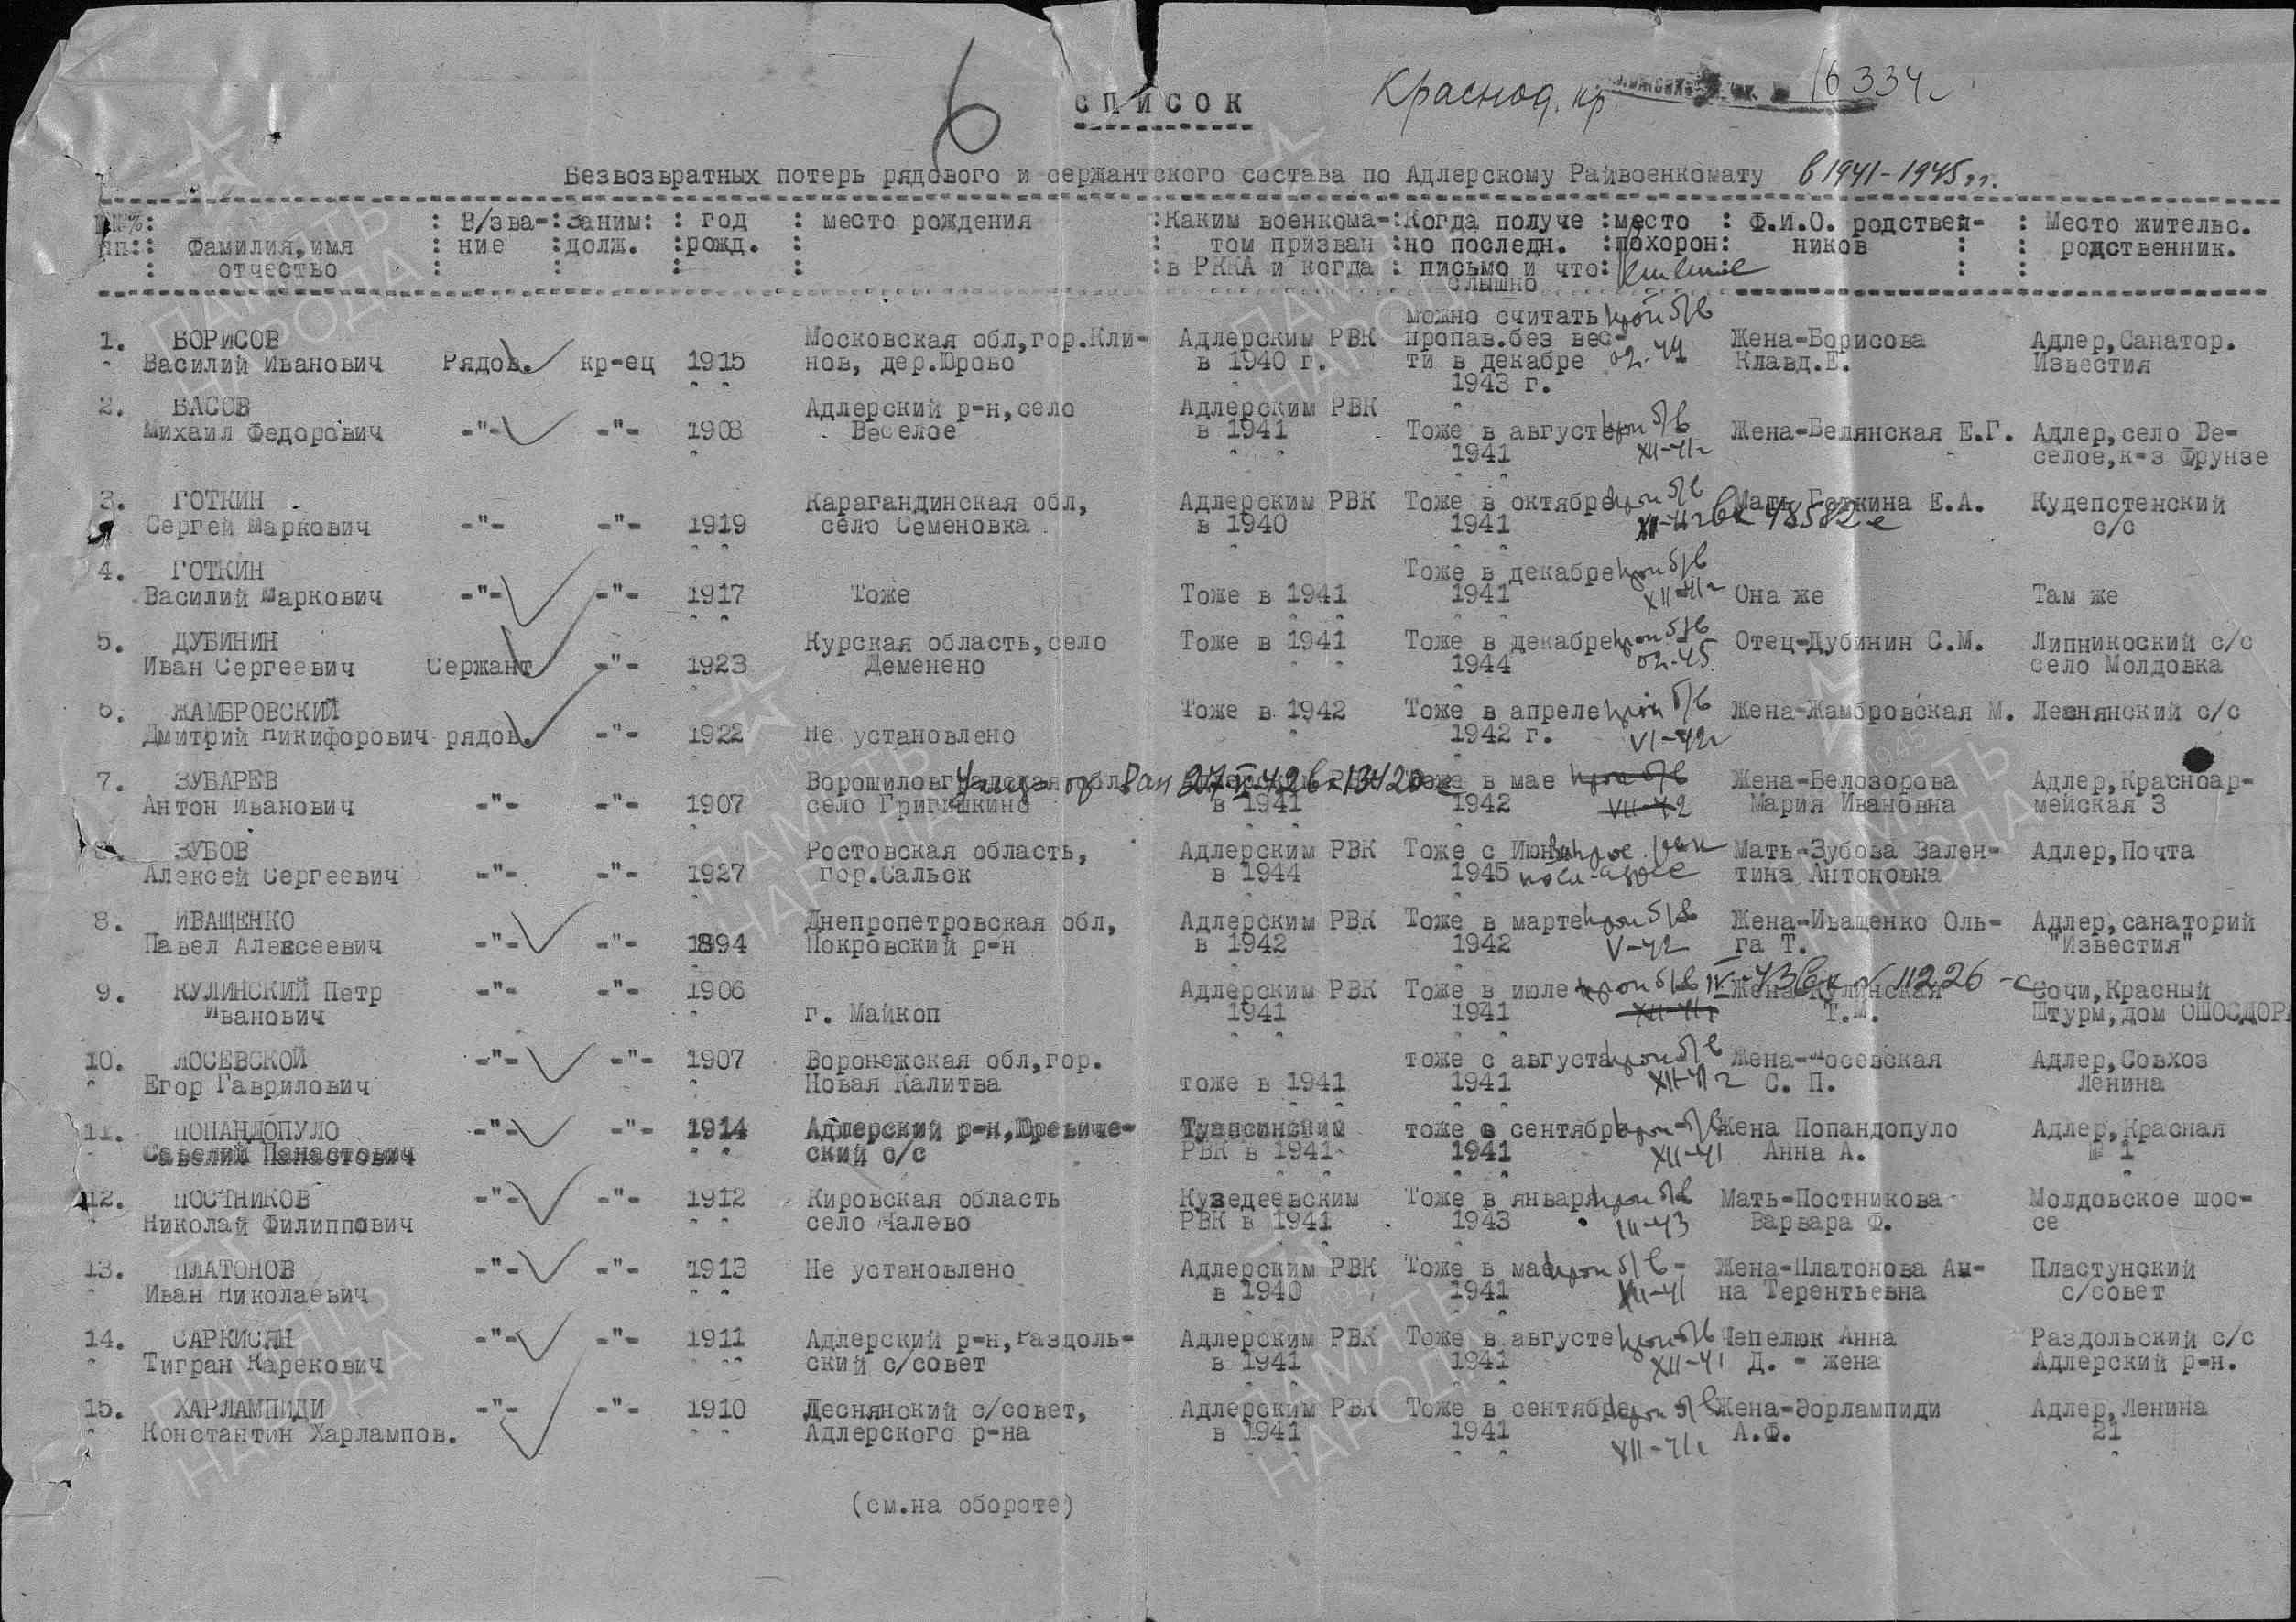 6
СПИСОК
Краснод. кр. 16334с
Безвозвратных потерь рядового и сержантского состава по Адлерскому Райвоенкомату в 1941-1945 гг.
№№%: : В/зва-: Заним: : год : место рождения :Каким военкома-:Когда получе :место : Ф.И.О. родствен- : Место жительс.
пп:: Фамилия,имя : ние :долж. :рожд. : : том призван :но последн. :похорон: ников : : родственник.
: отчество : : : : :в РККА и когда : письмо и что: : :
слышно
можно считать проп б/в
1. БОРИСОВ Московская обл,гор.Кли- Адлерским РВК пропав.без вес- Жена-Борисова Адлер,Санатор.
Василий Иванович Рядов. кр-ец 1915 нов, дер.Юрово в 1940 г. ти в декабре 02-44 Клавд.Е. Известия
1943 г.
2. БАСОВ Адлерский р-н,село Адлерским РВК
Михаил Федорович -"- -"- 1908 Веселое в 1941 Тоже в августе проп б/в Жена-Белянская Е.Г. Адлер,село Ве-
1941 XII-41г селое,к-з Фрунзе
3. ГОТКИН Карагандинская обл, Адлерским РВК Тоже в октябре проп б/в Мать Готкина Е.А. Кудепстенский
Сергей Маркович -"- -"- 1919 село Семеновка в 1940 1941 XII-41г вх 48582с с/с
4. ГОТКИН Тоже в декабре проп б/в
Василий Маркович -"- -"- 1917 Тоже Тоже в 1941 1941 XII-41г Она же Там же
5. ДУБИНИН Курская область,село Тоже в 1941 Тоже в декабре проп б/в Отец-Дубинин С.М. Липникоский с/с
Иван Сергеевич Сержант -"- 1923 Деменено 1944 02-45. село Молдовка
6. ЖАМБРОВСКИЙ Тоже в 1942 Тоже в апреле проп б/в Жена-Жамбровская М. Леснянский с/с
Дмитрий Никифорович рядов. -"- 1922 Не установлено 1942 г. VI-42г
7. ЗУБАРЕВ 27 V 42 вх 13420с в мае проп б/в Жена-Белозорова Адлер,Красноар-
Антон Иванович -"- -"- 1907 село Григишкино в 1941 1942 VII-42 Мария Ивановна мейская 3
ЗУБОВ Ростовская область, Адлерским РВК Тоже с Июня Мать-Зубова Вален- Адлер,Почта
Алексей Сергеевич -"- -"- 1927 гор.Сальск в 1944 1945 тина Антоновна
8. ИВАЩЕНКО Днепропетровская обл, Адлерским РВК Тоже в марте проп б/в Жена-Иващенко Оль- Адлер,санаторий
Павел Алексеевич -"- -"- 1894 Покровский р-н в 1942 1942 V-42 га Т. "Известия"
9. КУЛИНСКИЙ Петр -"- -"- 1906 Адлерским РВК Тоже в июле проп б/в IV-43 вх № 11226-с Жена-Кулинская Сочи,Красный
Иванович г. Майкоп 1941 1941 XII-41г Т.М. Штурм,дом ОШОСДОРА
10. ЛОСЕВСКОЙ -"- -"- 1907 Воронежская обл,гор. тоже с августа проп б/в Жена-Лосевская Адлер,Совхоз
Егор Гаврилович Новая Калитва тоже в 1941 1941 XII-41г С. П. Ленина
11. ПОПАНДОПУЛО -"- -"- 1914 Адлерский р-н,Юревиче- Туапсинским тоже в сентябре проп б/в Жена Попандопуло Адлер,Красная
Савелий Панастович ский с/с РВК в 1941 1941 XII-41 Анна А. № 1
12. ПОСТНИКОВ -"- -"- 1912 Кировская область Кузедеевским Тоже в январе проп б/в Мать-Постникова Молдовское шос-
Николай Филиппович село Чалево РВК в 1941 1943 III-43 Варвара Ф. се
13. ПЛАТОНОВ -"- -"- 1913 Не установлено Адлерским РВК Тоже в мае проп б/в - Жена-Платонова Ан- Пластунский
Иван Николаевич в 1940 1941 XII-41 на Терентьевна с/совет
14. САРКИСЯН -"- -"- 1911 Адлерский р-н,Раздоль- Адлерским РВК Тоже в августе проп б/в Чепелюк Анна Раздольский с/с
Тигран Карекович ский с/совет в 1941 1941 XII-41 Д. - жена Адлерский р-н.
15. ХАРЛАМПИДИ -"- -"- 1910 Деснянский с/совет, Адлерским РВК Тоже в сентябре проп б/в Жена-Эорлампиди Адлер,Ленина
Константин Харлампов. Адлерского р-на в 1941 1941 XII-41г А.Ф. 21
(см.на обороте)
ПАМЯТЬ НАРОДА